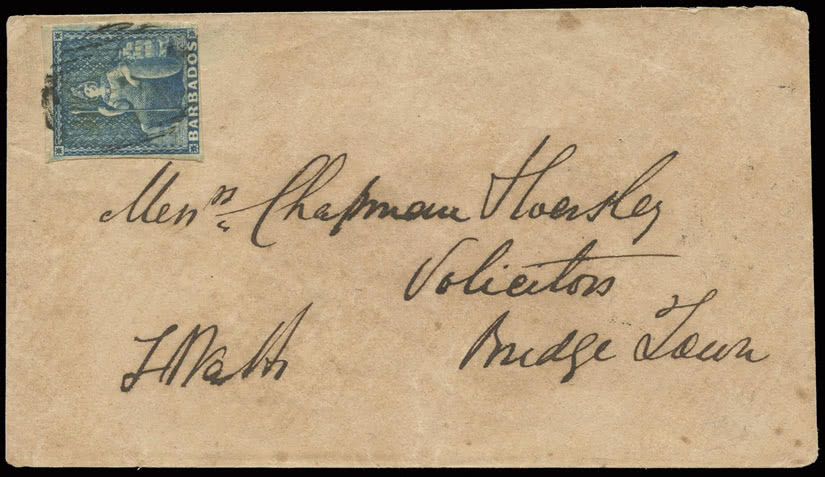 BARBADOS
Messrs Chapman Hoersley
Solicitors
Bridge Town
J Watts